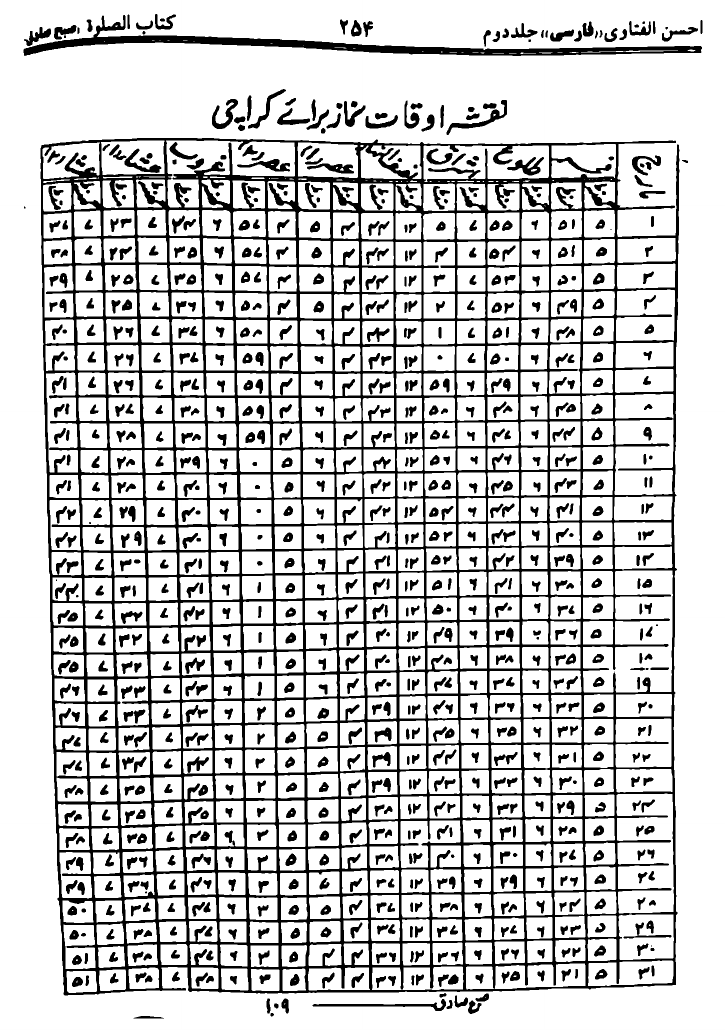 احسن الفتاوی «فارسی» جلد دوم ۲۵۴ کتاب الصلوة، صبح صادق
نقشہ اوقات نماز برائے کراچی
تاریخ فجر طلوع اشراق نصف النہار عصر(۱) عصر(۲) غروب عشاء(۱) عشاء(۲)
گھنٹہ منٹ گھنٹہ منٹ گھنٹہ منٹ گھنٹہ منٹ گھنٹہ منٹ گھنٹہ منٹ گھنٹہ منٹ گھنٹہ منٹ گھنٹہ منٹ
۱ ۵ ۵۱ ۶ ۵۵ ۷ ۵ ۱۲ ۴۴ ۴ ۵ ۴ ۵۷ ۶ ۳۴ ۷ ۲۳ ۷ ۳۷
۲ ۵ ۵۱ ۶ ۵۴ ۷ ۴ ۱۲ ۴۴ ۴ ۵ ۴ ۵۷ ۶ ۳۵ ۷ ۲۴ ۷ ۳۸
۳ ۵ ۵۰ ۶ ۵۳ ۷ ۳ ۱۲ ۴۴ ۴ ۵ ۴ ۵۷ ۶ ۳۵ ۷ ۲۵ ۷ ۳۹
۴ ۵ ۴۹ ۶ ۵۲ ۷ ۲ ۱۲ ۴۴ ۴ ۵ ۴ ۵۸ ۶ ۳۶ ۷ ۲۵ ۷ ۳۹
۵ ۵ ۴۸ ۶ ۵۱ ۷ ۱ ۱۲ ۴۳ ۴ ۶ ۴ ۵۸ ۶ ۳۷ ۷ ۲۶ ۷ ۴۰
۶ ۵ ۴۷ ۶ ۵۰ ۷ ۰ ۱۲ ۴۳ ۴ ۶ ۴ ۵۹ ۶ ۳۷ ۷ ۲۶ ۷ ۴۰
۷ ۵ ۴۶ ۶ ۴۹ ۶ ۵۹ ۱۲ ۴۳ ۴ ۶ ۴ ۵۹ ۶ ۳۷ ۷ ۲۶ ۷ ۴۱
۸ ۵ ۴۵ ۶ ۴۸ ۶ ۵۸ ۱۲ ۴۳ ۴ ۶ ۴ ۵۹ ۶ ۳۸ ۷ ۲۷ ۷ ۴۱
۹ ۵ ۴۴ ۶ ۴۷ ۶ ۵۷ ۱۲ ۴۳ ۴ ۶ ۴ ۵۹ ۶ ۳۸ ۷ ۲۸ ۷ ۴۱
۱۰ ۵ ۴۳ ۶ ۴۶ ۶ ۵۶ ۱۲ ۴۲ ۴ ۶ ۵ ۰ ۶ ۳۹ ۷ ۲۸ ۷ ۴۱
۱۱ ۵ ۴۳ ۶ ۴۵ ۶ ۵۵ ۱۲ ۴۲ ۴ ۶ ۵ ۰ ۶ ۴۰ ۷ ۲۸ ۷ ۴۱
۱۲ ۵ ۴۱ ۶ ۴۴ ۶ ۵۴ ۱۲ ۴۲ ۴ ۶ ۵ ۰ ۶ ۴۰ ۷ ۲۹ ۷ ۴۲
۱۳ ۵ ۴۰ ۶ ۴۳ ۶ ۵۳ ۱۲ ۴۱ ۴ ۶ ۵ ۰ ۶ ۴۰ ۷ ۲۹ ۷ ۴۲
۱۴ ۵ ۳۹ ۶ ۴۲ ۶ ۵۲ ۱۲ ۴۱ ۴ ۶ ۵ ۰ ۶ ۴۱ ۷ ۳۰ ۷ ۴۳
۱۵ ۵ ۳۸ ۶ ۴۱ ۶ ۵۱ ۱۲ ۴۱ ۴ ۶ ۵ ۱ ۶ ۴۱ ۷ ۳۱ ۷ ۴۴
۱۶ ۵ ۳۷ ۶ ۴۰ ۶ ۵۰ ۱۲ ۴۱ ۴ ۶ ۵ ۱ ۶ ۴۲ ۷ ۳۲ ۷ ۴۵
۱۷ ۵ ۳۶ ۶ ۳۹ ۶ ۴۹ ۱۲ ۴۰ ۴ ۶ ۵ ۱ ۶ ۴۲ ۷ ۳۲ ۷ ۴۵
۱۸ ۵ ۳۵ ۶ ۳۸ ۶ ۴۸ ۱۲ ۴۰ ۴ ۶ ۵ ۱ ۶ ۴۲ ۷ ۳۲ ۷ ۴۵
۱۹ ۵ ۳۴ ۶ ۳۷ ۶ ۴۷ ۱۲ ۴۰ ۴ ۶ ۵ ۱ ۶ ۴۳ ۷ ۳۳ ۷ ۴۶
۲۰ ۵ ۳۳ ۶ ۳۶ ۶ ۴۶ ۱۲ ۳۹ ۴ ۵ ۵ ۲ ۶ ۴۳ ۷ ۳۳ ۷ ۴۶
۲۱ ۵ ۳۲ ۶ ۳۵ ۶ ۴۵ ۱۲ ۳۹ ۴ ۵ ۵ ۲ ۶ ۴۴ ۷ ۳۴ ۷ ۴۷
۲۲ ۵ ۳۱ ۶ ۳۴ ۶ ۴۴ ۱۲ ۳۹ ۴ ۵ ۵ ۲ ۶ ۴۴ ۷ ۳۴ ۷ ۴۷
۲۳ ۵ ۳۰ ۶ ۳۳ ۶ ۴۳ ۱۲ ۳۹ ۴ ۵ ۵ ۲ ۶ ۴۵ ۷ ۳۵ ۷ ۴۸
۲۴ ۵ ۲۹ ۶ ۳۲ ۶ ۴۲ ۱۲ ۳۸ ۴ ۵ ۵ ۲ ۶ ۴۵ ۷ ۳۵ ۷ ۴۸
۲۵ ۵ ۲۸ ۶ ۳۱ ۶ ۴۱ ۱۲ ۳۸ ۴ ۵ ۵ ۳ ۶ ۴۵ ۷ ۳۵ ۷ ۴۸
۲۶ ۵ ۲۷ ۶ ۳۰ ۶ ۴۰ ۱۲ ۳۸ ۴ ۵ ۵ ۲ ۶ ۴۶ ۷ ۳۶ ۷ ۴۹
۲۷ ۵ ۲۶ ۶ ۲۹ ۶ ۳۹ ۱۲ ۳۷ ۴ ۵ ۳ ۶ ۴۶ ۷ ۳۶ ۷ ۴۹
۲۸ ۵ ۲۴ ۶ ۲۸ ۶ ۳۸ ۱۲ ۳۷ ۴ ۵ ۵ ۳ ۶ ۴۷ ۷ ۳۷ ۷ ۵۰
۲۹ ۵ ۲۳ ۶ ۲۷ ۶ ۳۷ ۱۲ ۳۷ ۴ ۵ ۵ ۳ ۶ ۴۷ ۷ ۳۸ ۷ ۵۰
۳۰ ۵ ۲۲ ۶ ۲۶ ۶ ۳۶ ۱۲ ۳۶ ۴ ۴ ۵ ۳ ۶ ۴۷ ۷ ۳۸ ۷ ۵۱
۳۱ ۵ ۲۱ ۶ ۲۵ ۶ ۳۵ ۱۲ ۳۶ ۴ ۴ ۵ ۳ ۶ ۴۸ ۷ ۳۸ ۷ ۵۱
صبح صادق ۱۰۹